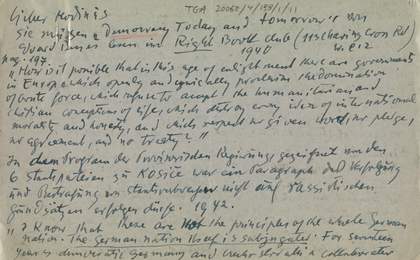 Lieber Hodinis TGA 20052/4/159/1/11
Sie mögen "Democracy Today and tomorrow" von
Eduard Benes lesen im Right Book club (11 Charing Cross Rd)
pag. 197. 1940 W.C.2
"How is it possible that in this age of enlightment there are governments
in Europe which openly and cynically proclaim the domination
of brute force, which refuse to accept the humanitarian and
christian conceptions of life, which destroy every idea of international
morality and honesty, and which respect no given word, no pledge,
no agreement, and no treaty?"
In dem Program der Provisorischen Regierung gezeichnet von den
6 Staatsparteien zu Kosice war ein Paragraph das Verfolgung
und Bestrafung von Staatsverbrechern nicht auf rassistischen
Grundsätzen erfolgen dürfe. 1942.
"I know that these are not the principles of the whole German
nation. The German nation itself is subjugated. For seventeen
years democratic Germany and Czechoslovakia collaborated